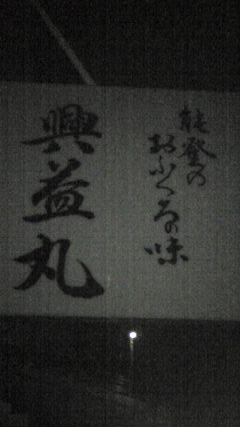 能登の
おふくろの味
興益丸